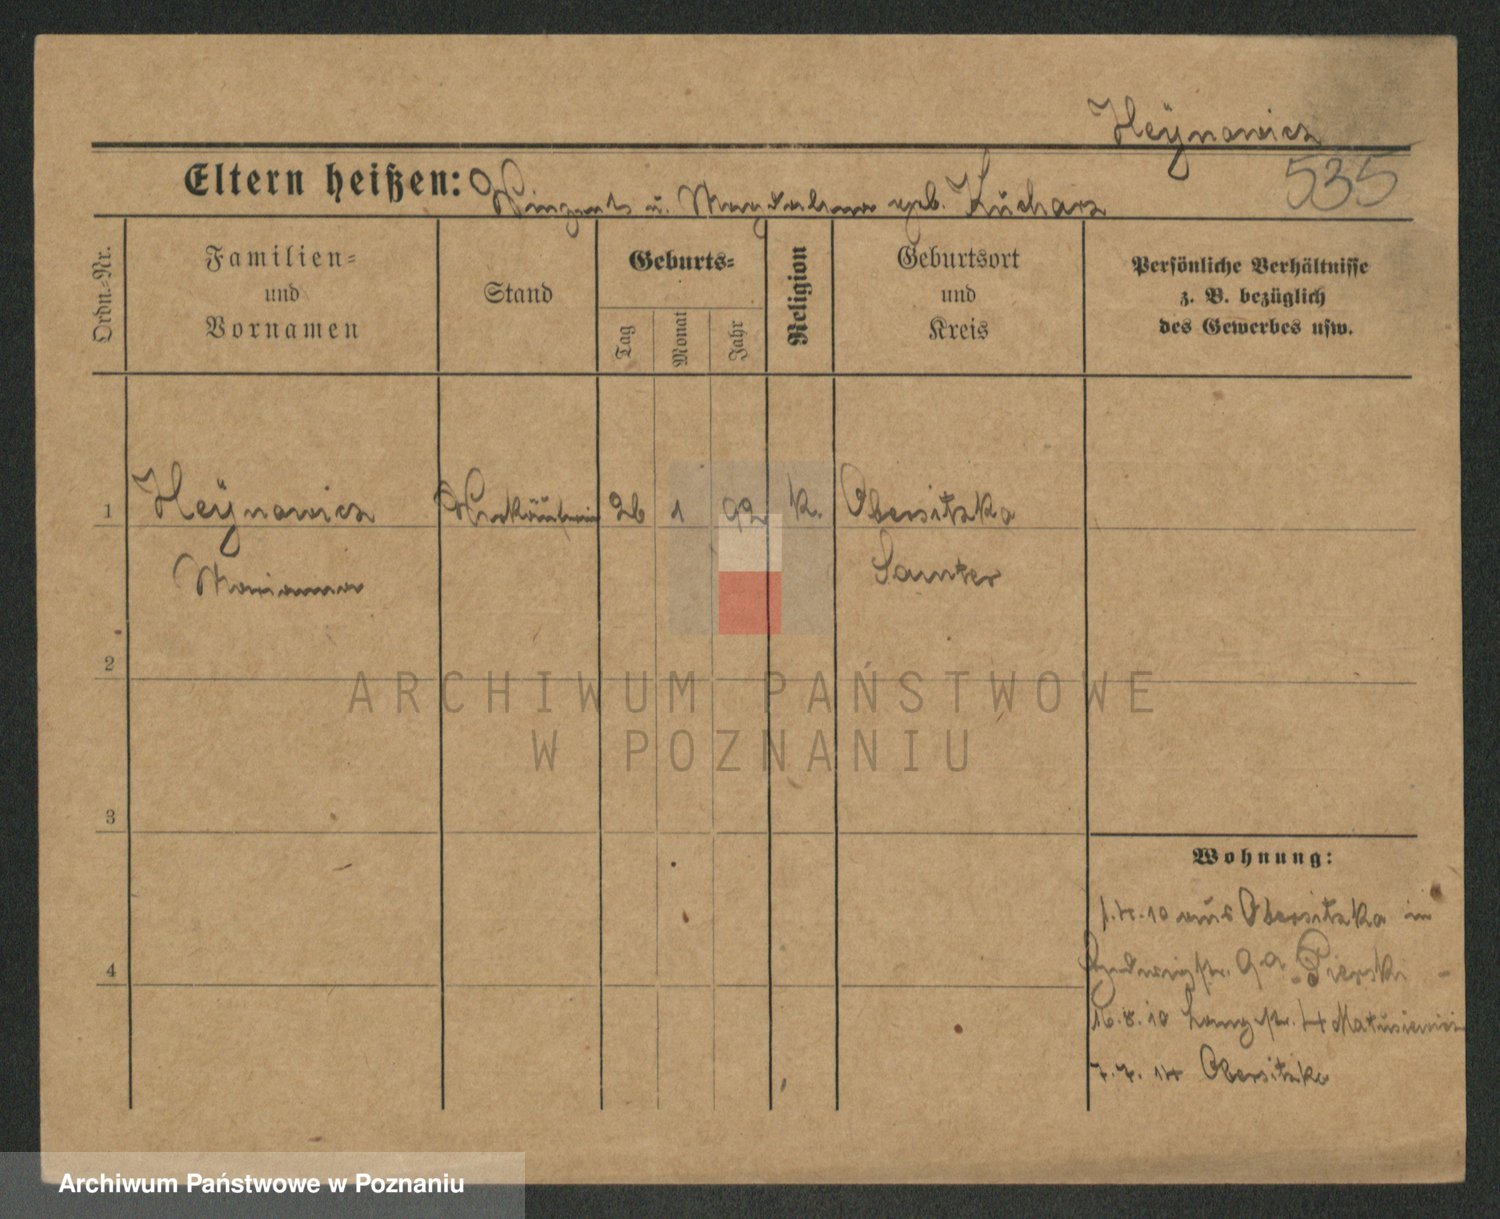 Heÿnowicz
535
Eltern heißen: Vinzents u. Magdalena geb. Kucharz
Ordn.-Nr.
Familien-
und
Vornamen
Stand
Geburts-
Tag
Monat
Jahr
Religion
Geburtsort
und
Kreis
Persönliche Verhältnisse
z. B. bezüglich
des Gewerbes usw.
1 Heÿnowicz Verkäuferin 26 1 92 k. Obersitzko
Marianna Samter
2
ARCHIWUM PAŃSTWOWE
W POZNANIU
3
Wohnung:
1.4.10 aus Obersitzko in
9a Pierski
4
16.8.10 Langstr. 4
7.7.14 Obersitzko
Archiwum Państwowe w Poznaniu